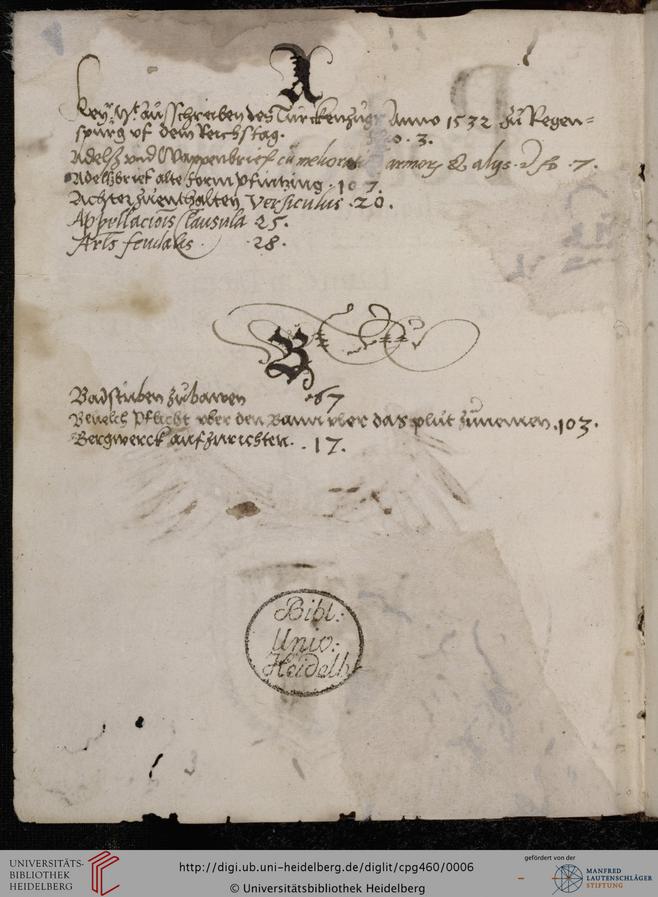 A
Key: Mt: ausschreiben des Türckenzugs Anno 1532 zu Regen=
spurg vf dem Reichstag. 3.
Adelss vnd Wappenbrief cū melioratione armorz & alijs. 7.
Adelssbrief alte form 107.
Achter zuenthalten Versiculus .20.
Appellaciōis Clausula 25.
Artis feudalis . .28.
B
Badstuben zubawen 67
Beuelch Pflicht vber den Bann vber das plut zunemen .103.
Bergwerck aufzurichten. .17.
Bibl:
Univ:
Heidelb
UNIVERSITÄTS-
BIBLIOTHEK
HEIDELBERG
http://digi.ub.uni-heidelberg.de/diglit/cpg460/0006
© Universitätsbibliothek Heidelberg
gefördert von der
MANFRED
LAUTENSCHLÄGER
STIFTUNG